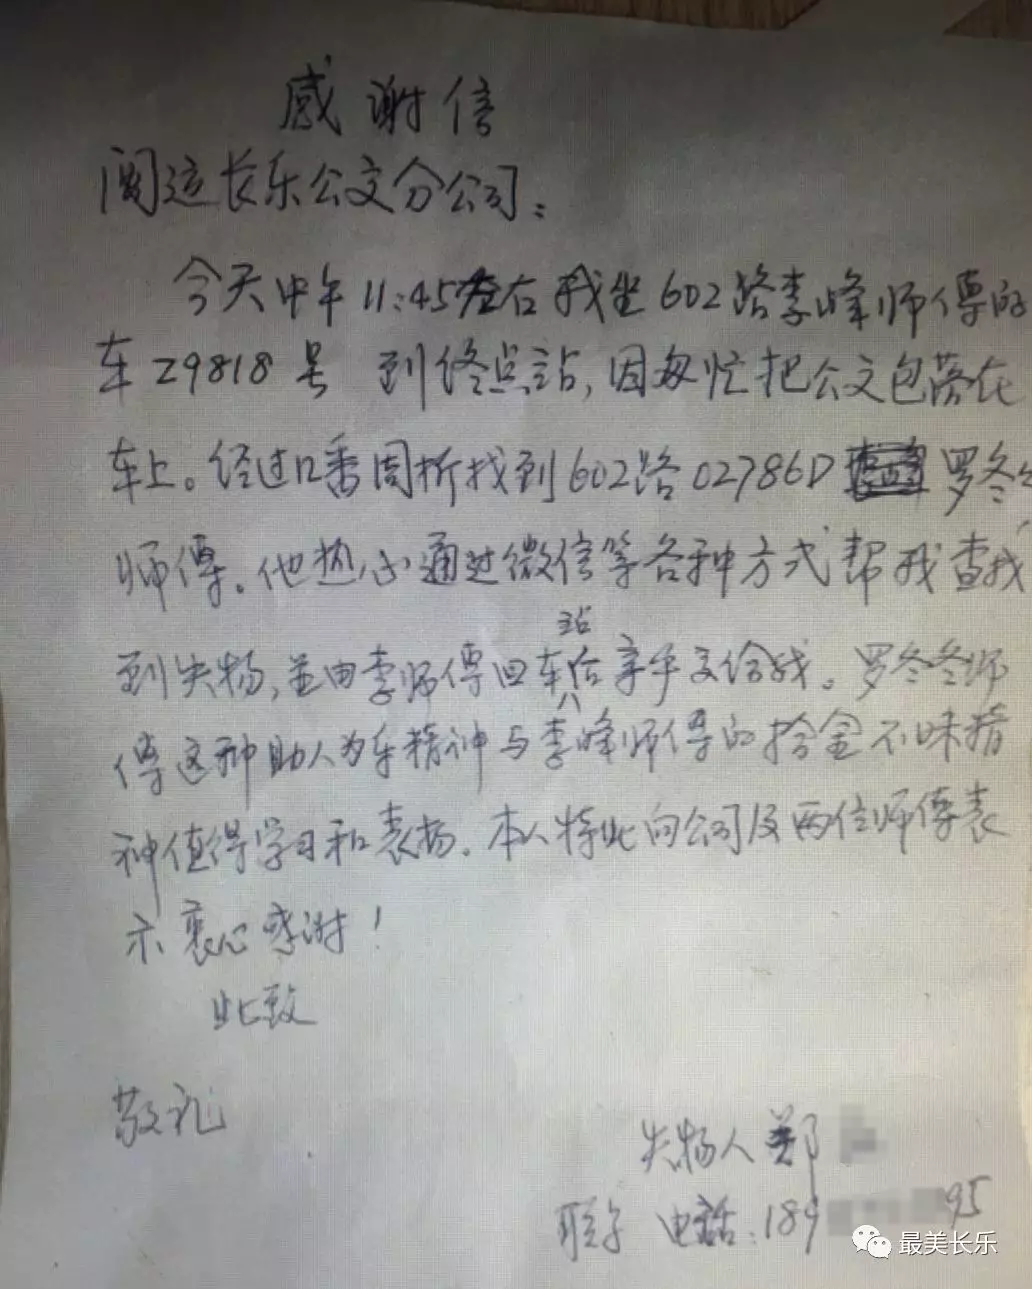 感谢信
闽运长乐公交分公司:
今天中午11:45左右我坐602路李峰师傅的
车29818号 到终点站,因匆忙把公文包落在
车上。经过几番周折找到602路02786D 罗冬冬
师傅。他热心通过微信等各种方式帮我查找
到失物,并由李师傅回车站后亲手交给我。罗冬冬师
傅这种助人为乐精神与李峰师傅的拾金不昧精
神值得学习和表扬。本人特此向公司及两位师傅表
示衷心感谢!
此致
敬礼
失物人 郑
联系电話:189 95
最美长乐